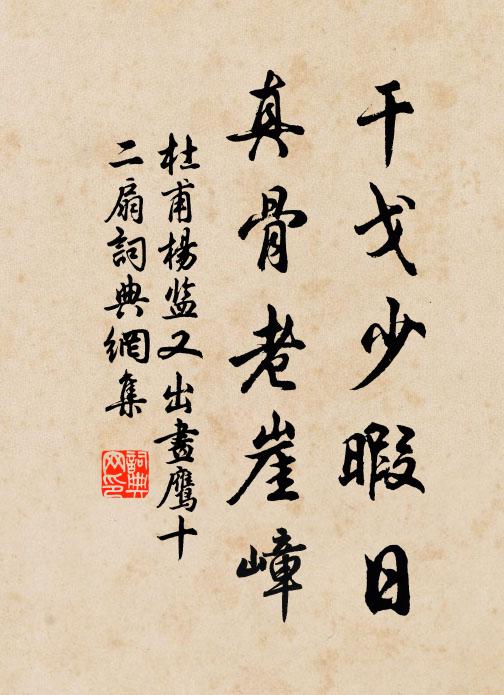 干戈少暇日
真骨老崖嶂
杜甫楊监又出畫鹰十
二扇詞典網集
詞典
网印